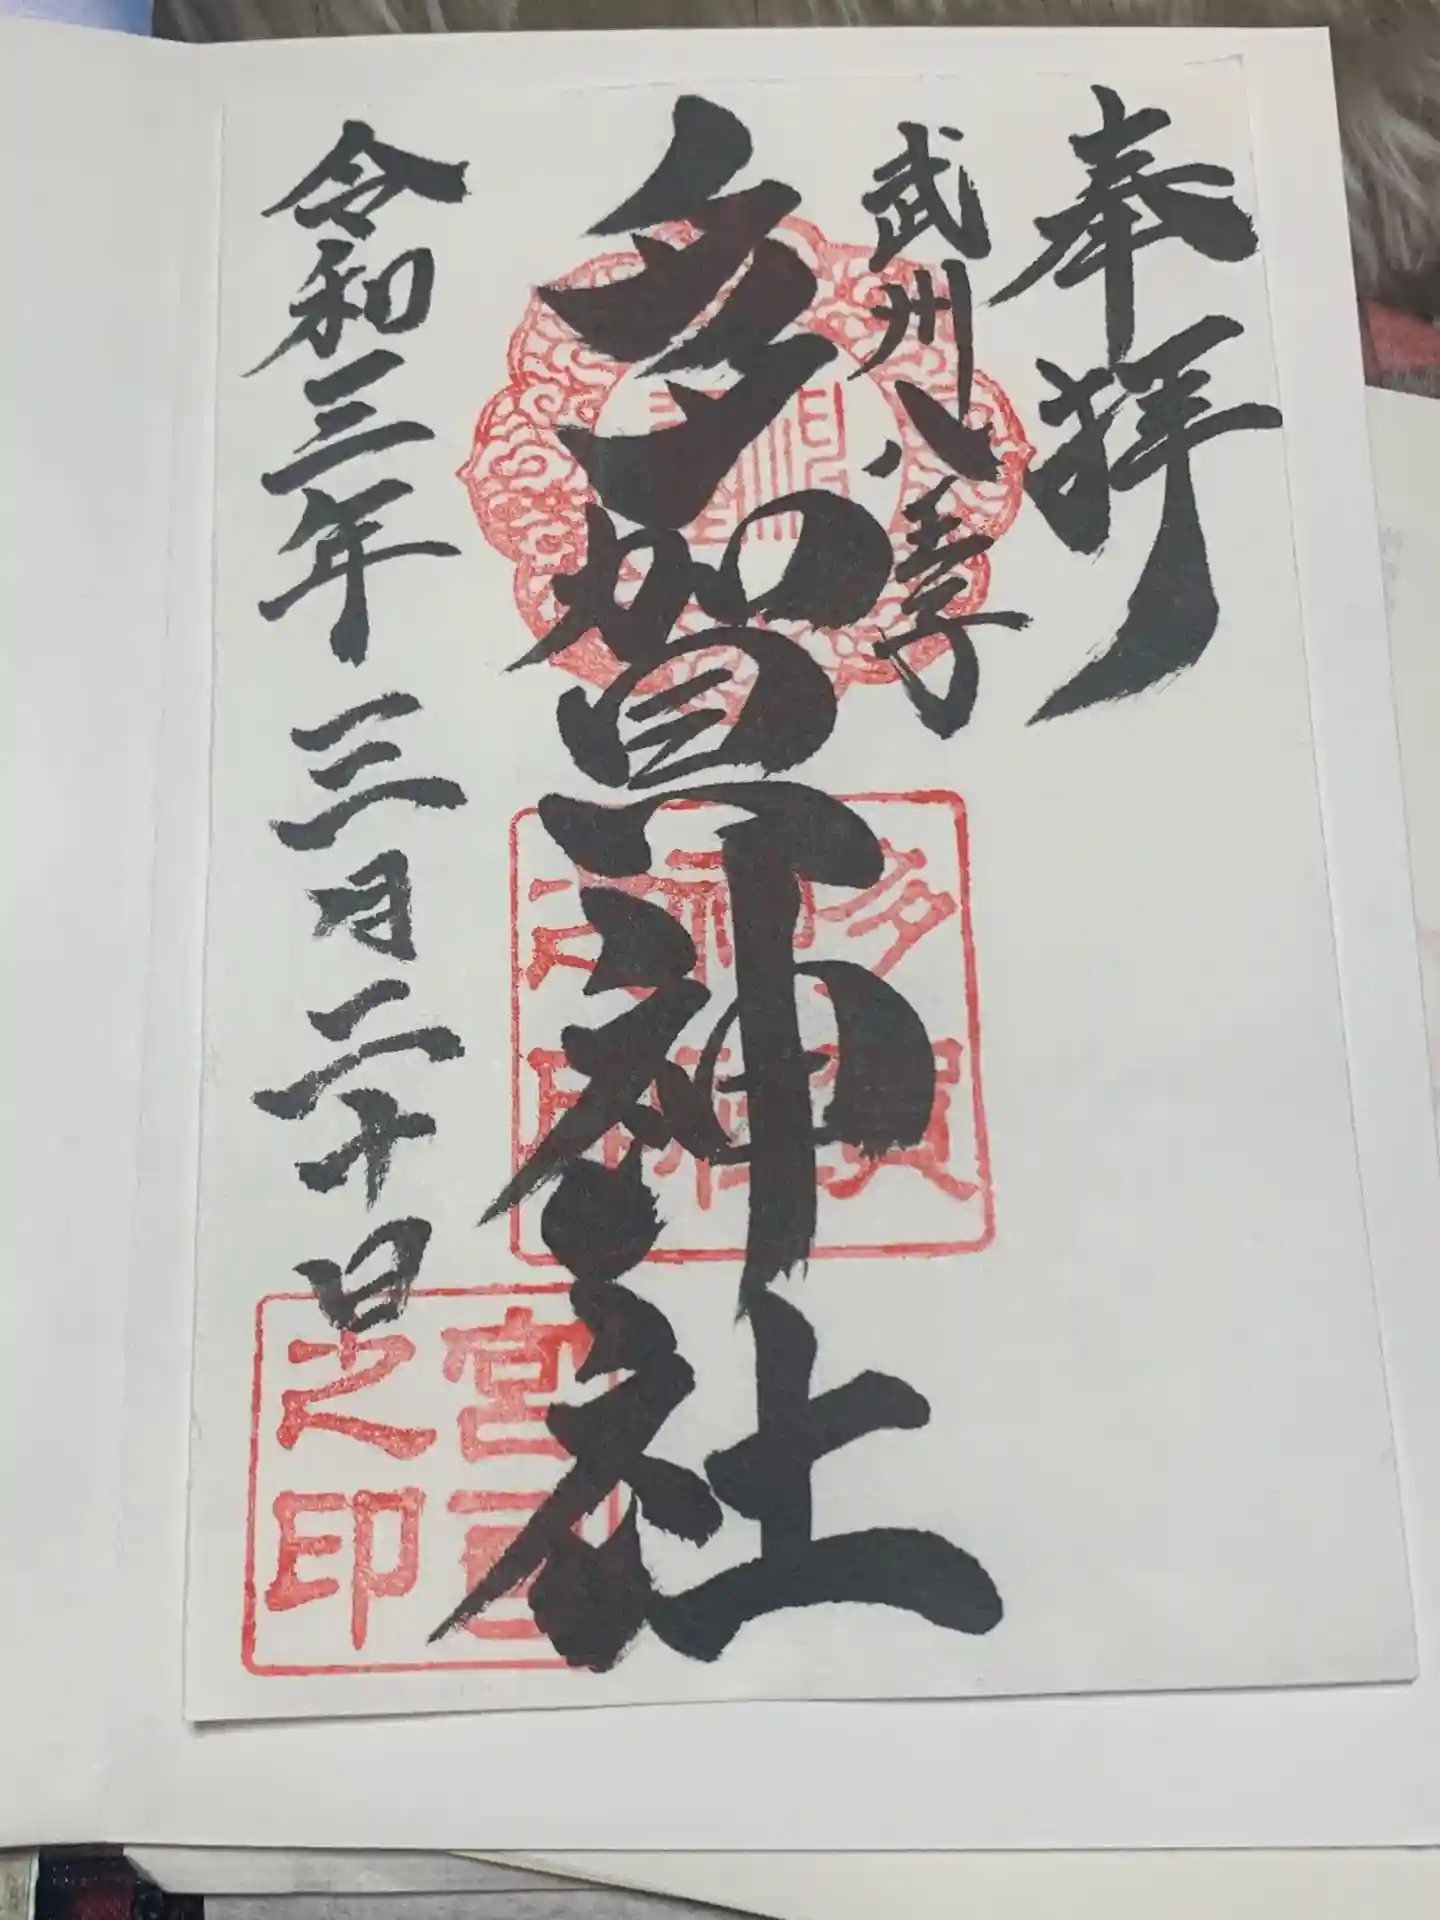 奉拝
武州八王子
多賀神社
令和三年 三月二十日
多賀
神社
之印
宮司
之印